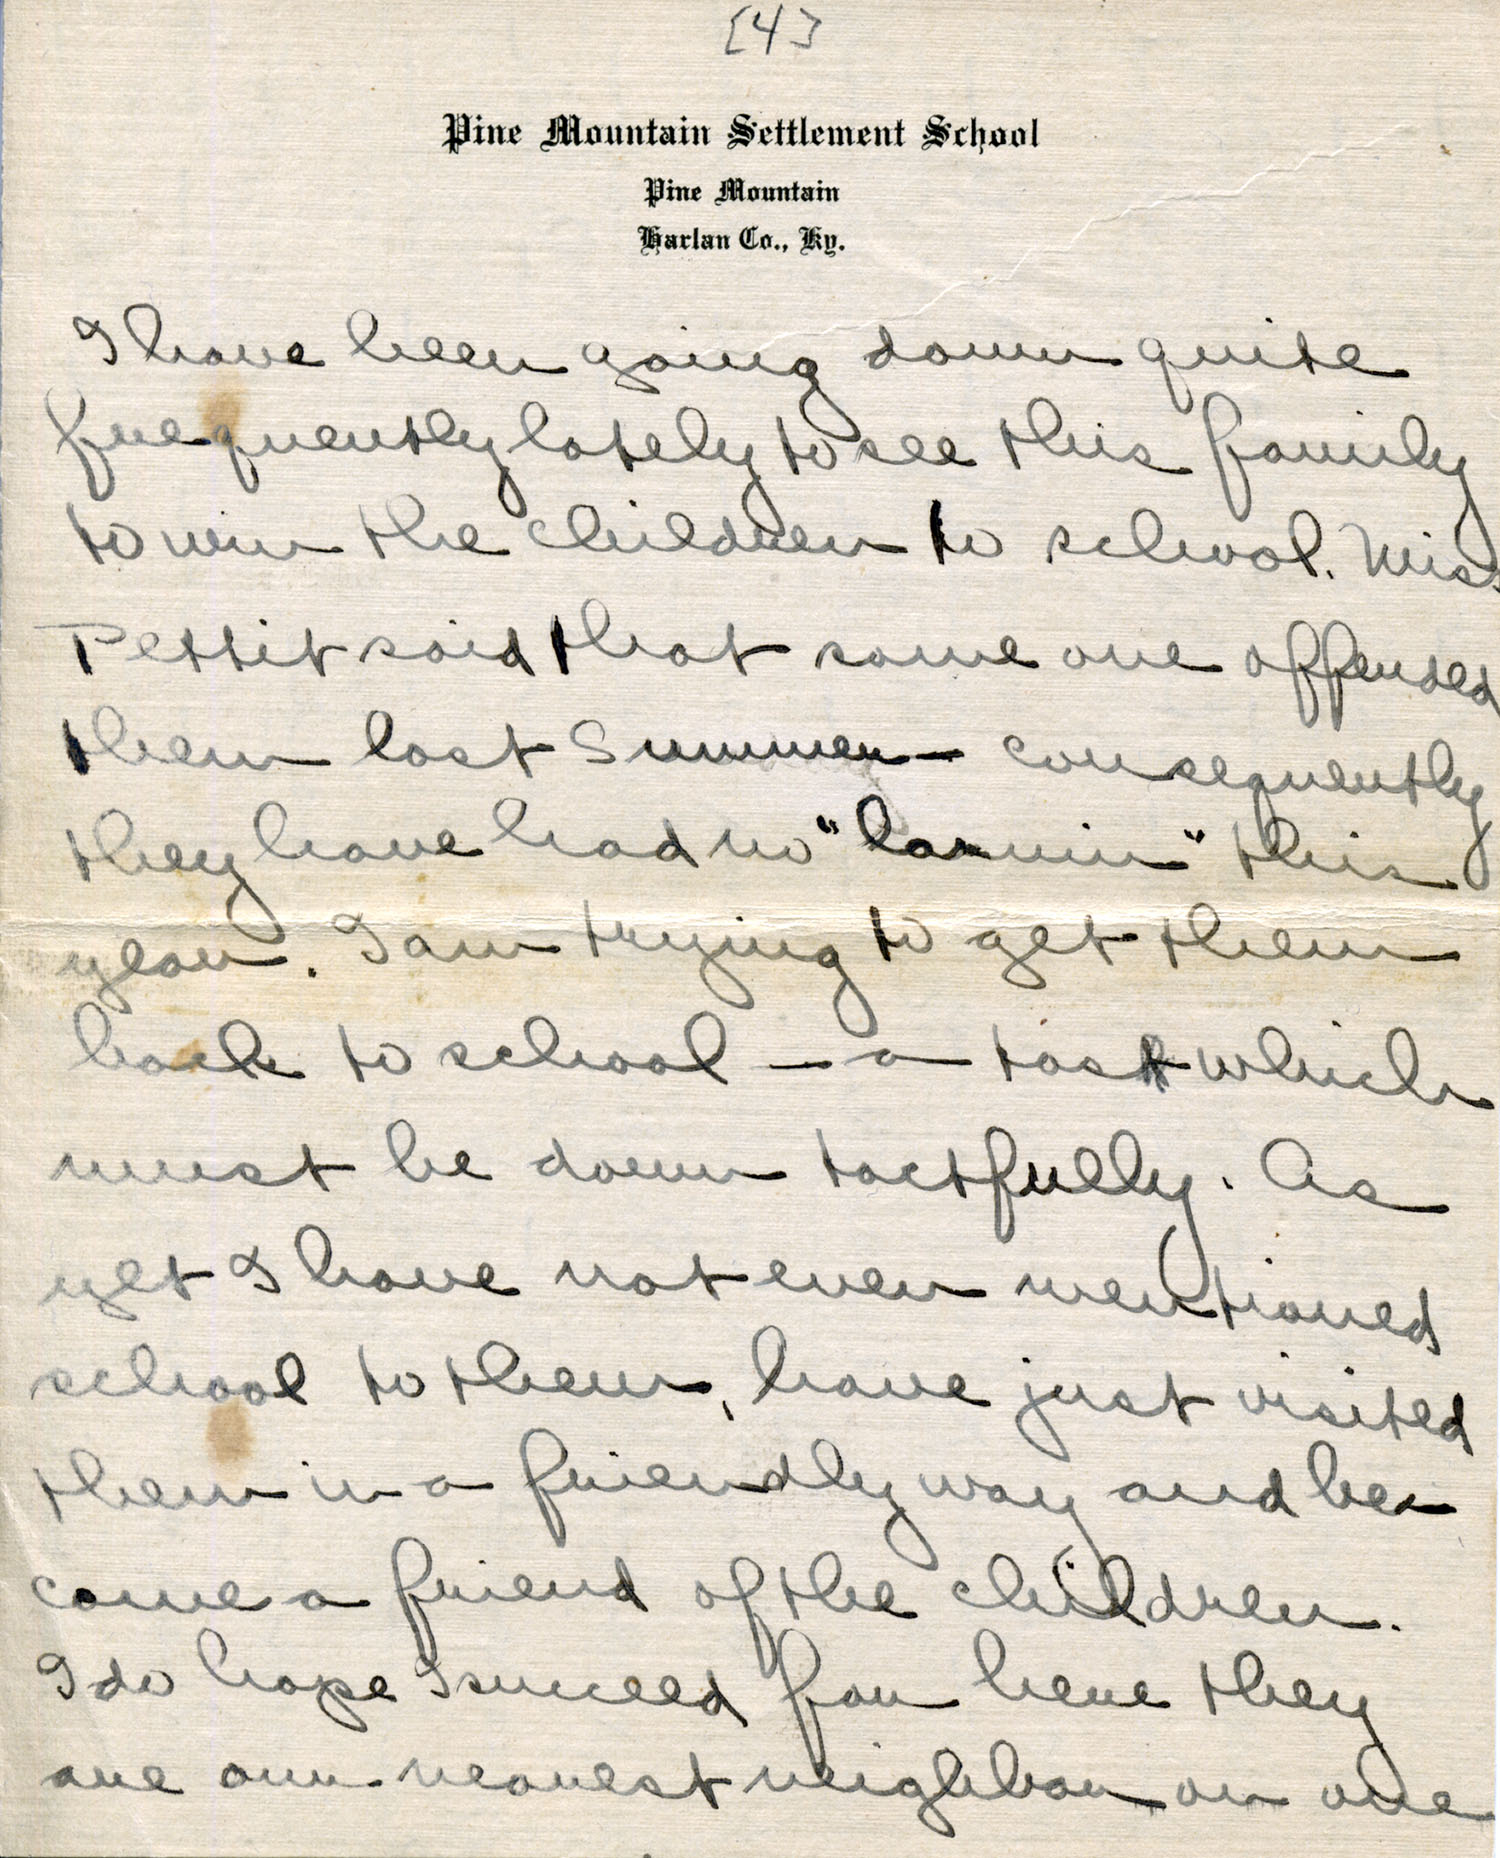 [4]
Pine Mountain Settlement School
Pine Mountain
Harlan Co., Ky.
I have been going down quite
frequently lately to see this family
to win the children to school. Miss
Pettit said that some one offended
them last Summer - consequently
they have had no "larnin" this
year. I am trying to get them
back to school - a task which
must be down tactfully. As
yet I have not even mentioned
school to them, have just visited
them in a friendly way and be-
come a friend of the children.
I do hope I succeed for here they
are our nearest neighbor on one